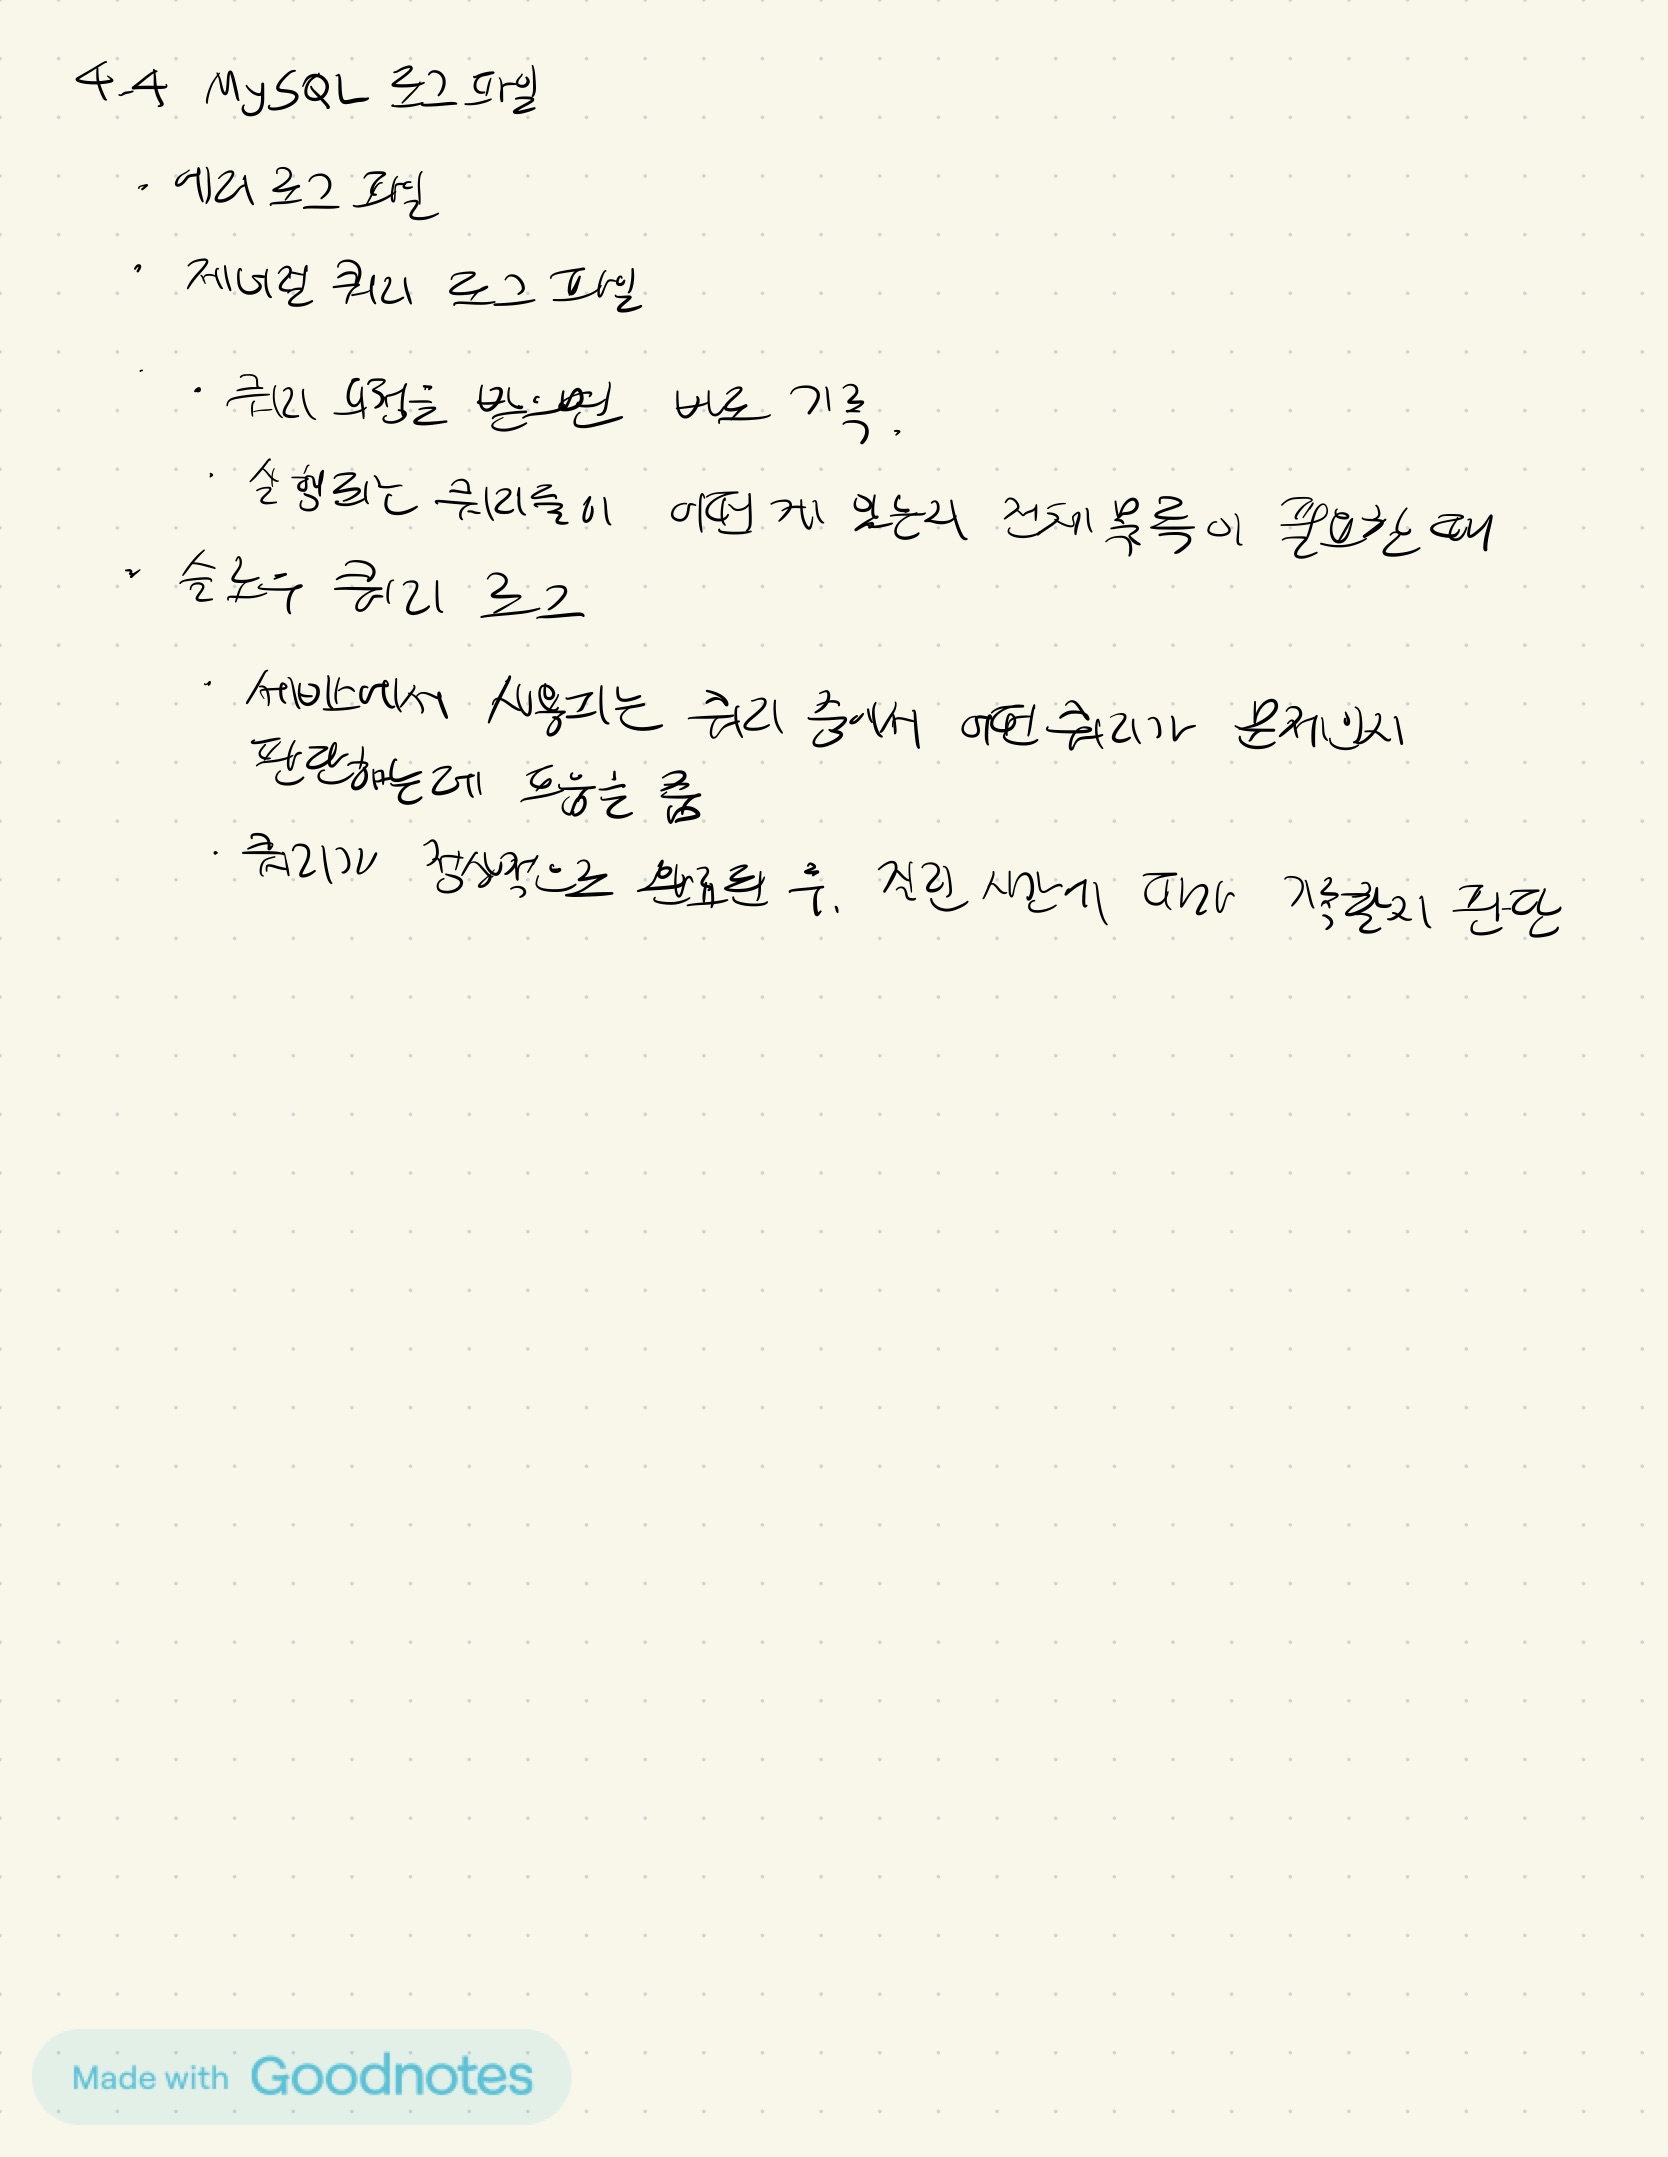 4.4 MySQL 로그 파일
· 에러 로그 파일
· 제너럴 쿼리 로그 파일
· 쿼리 요청을 받으면 바로 기록.
· 실행되는 쿼리들이 어떤 게 있는지 전체 목록이 필요할 때
· 슬로우 쿼리 로그
· 서비스에서 사용되는 쿼리 중에서 어떤 쿼리가 문제인지
판단하는데 도움을 줌
· 쿼리가 정상적으로 완료된 후, 걸린 시간에 따라 기록할지 판단
Made with Goodnotes